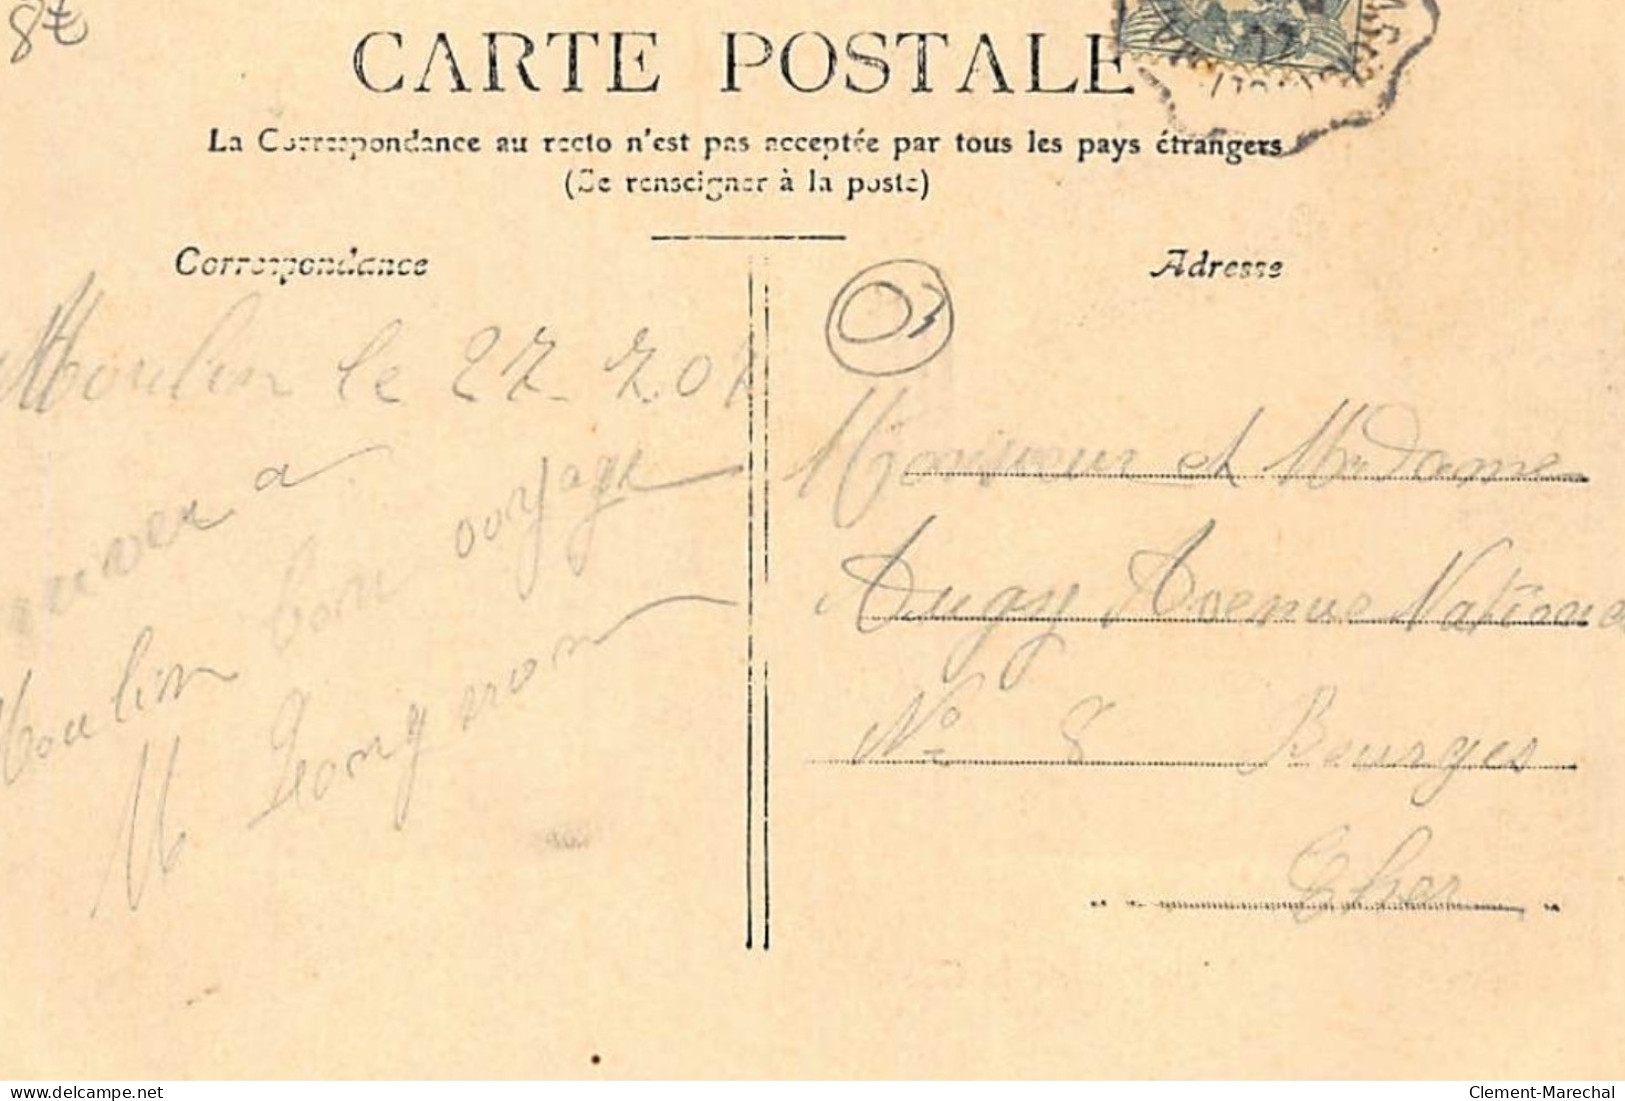 8€
CARTE POSTALE
La Correspondance au recto n'est pas acceptée par tous les pays étrangers
(Se renseigner à la poste)
Correspondance
Adresse
03
Moulin le 27-7.07
a
Moulin bon voyage
M
Monsieur et Madame
Augy Avenue Nationale
No 8 Bourges
Cher
www.delcampe.net
Clement-Marechal